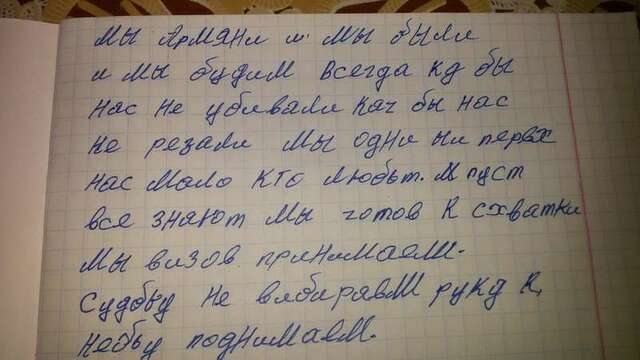 мы Армяни и мы были
и мы будим всегда кд бы
нас не убивали кач бы нас
не резали мы одни ни первх
нас мало кто любьт. И пуст
все знают мы готов к схватки
Мы визов принимаем.
Судбву не вибираем руки к
небву поднимаем.